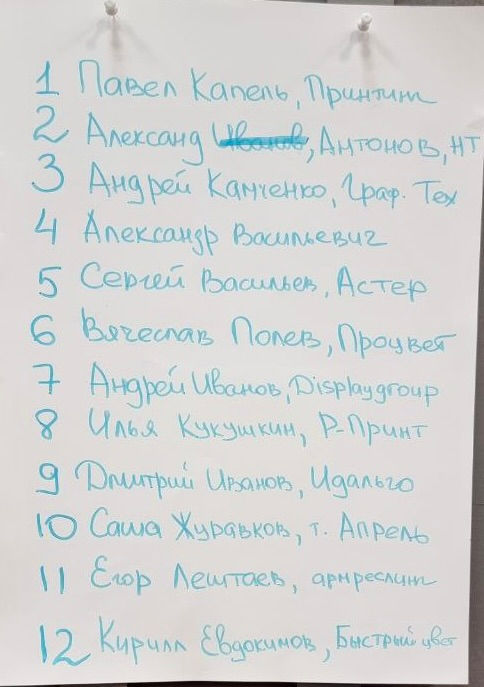 1 Павел Капель, Принтинг
2 Александ Иванов, Антонов, НТ
3 Андрей Камченко, Граф. Тех
4 Александр Васильевич
5 Сергей Васильев, Астер
6 Вячеслав Полев, Процвет
7 Андрей Иванов, Displaygroup
8 Илья Кукушкин, Р-Принт
9 Дмитрий Иванов, Идальго
10 Саша Журавков, т. Апрель
11 Егор Лештаев, армреслинг
12 Кирилл Евдокимов, Быстрый цвет